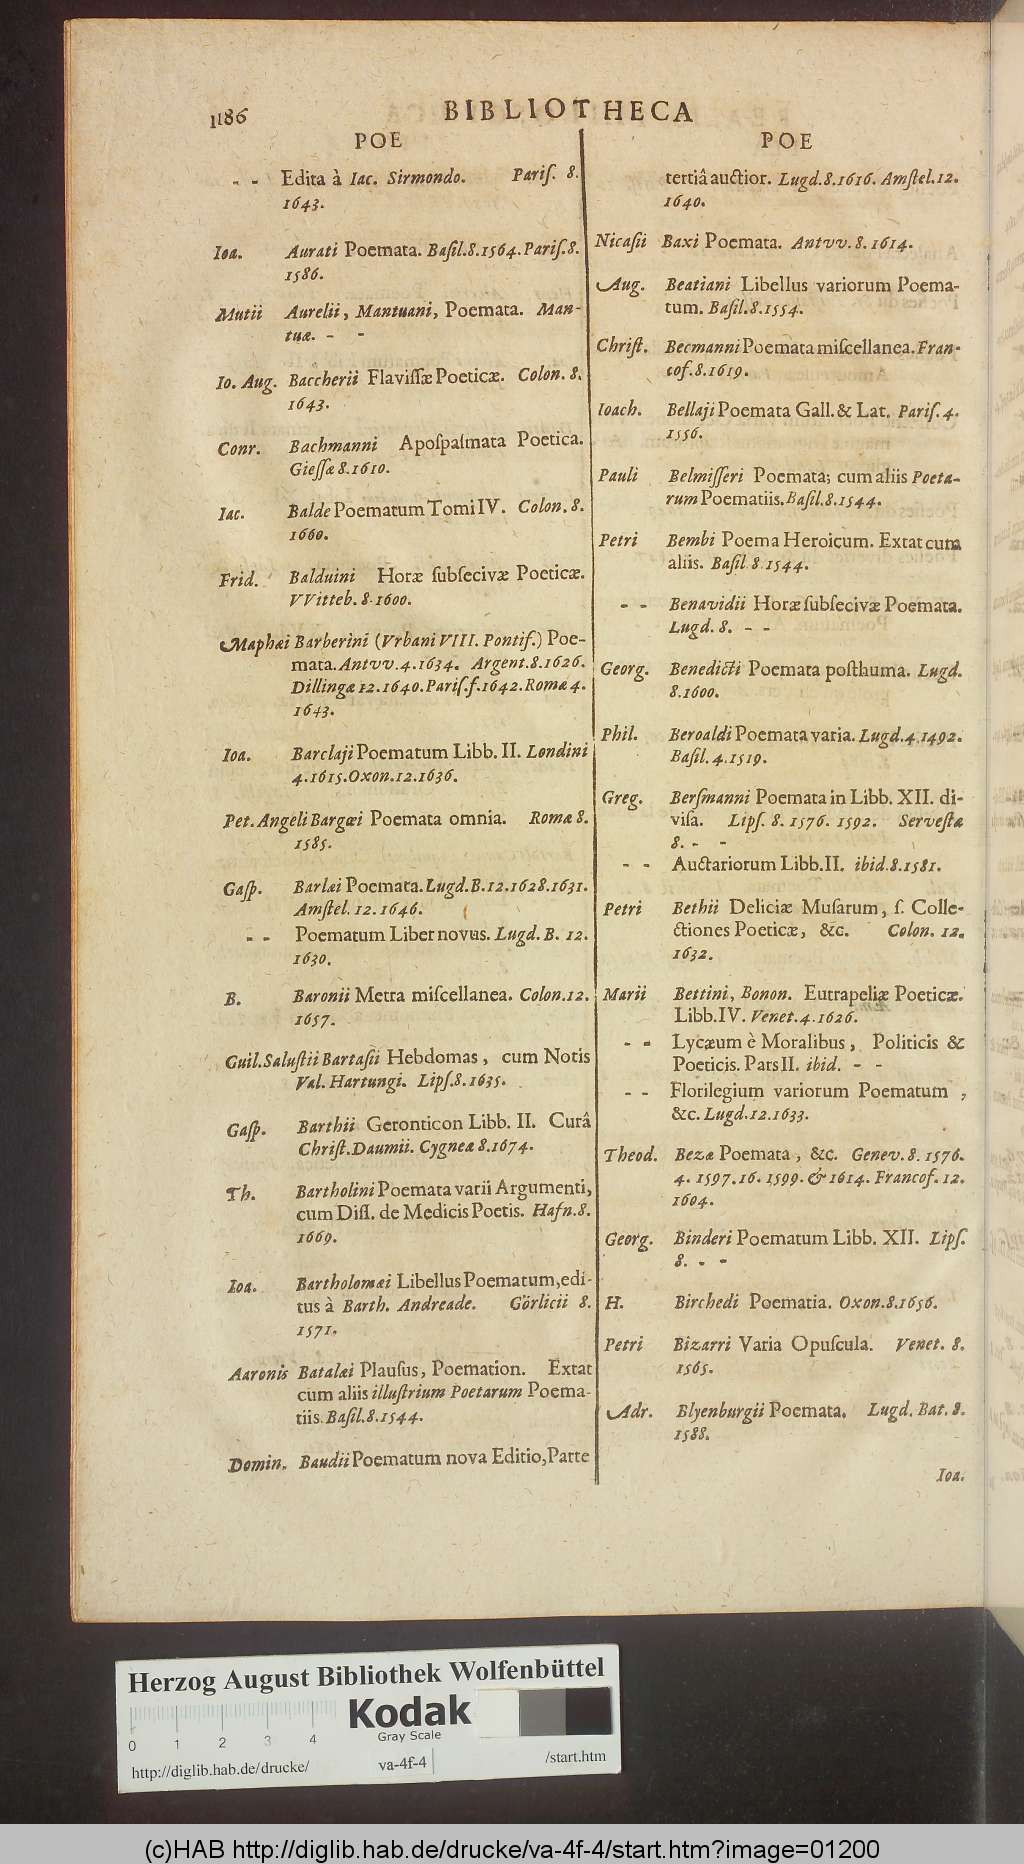 1186
BIBLIOTHECA
POE
- - Edita à Iac. Sirmondo. Pariſ. 8.
1643.
Ioa. Aurati Poemata. Baſil.8.1564. Pariſ.8.
1586.
Mutii Aurelii, Mantuani, Poemata. Man-
tuæ. - -
Io. Aug. Baccherii Flaviſſæ Poeticæ. Colon. 8.
1643.
Conr. Bachmanni Apoſpaſmata Poetica.
Gieſſæ 8.1610.
Iac. Balde Poematum Tomi IV. Colon. 8.
1660.
Frid. Balduini Horæ ſubſecivæ Poeticæ.
VVitteb. 8.1600.
Maphæi Barberini (Vrbani VIII. Pontif.) Poe-
mata. Antvv. 4.1634. Argent.8.1626.
Dillingæ 12.1640. Pariſ.f.1642. Romæ 4.
1643.
Ioa. Barclaji Poematum Libb. II. Londini
4.1615. Oxon.12.1636.
Pet. Angeli Bargæi Poemata omnia. Romæ 8.
1585.
Gaſp. Barlæi Poemata. Lugd.B.12.1628.1631.
Amſtel. 12.1646.
- - Poematum Liber novus. Lugd. B. 12.
1630.
B. Baronii Metra miſcellanea. Colon.12.
1657.
Guil. Saluſtii Bartaſii Hebdomas, cum Notis
Val. Hartungi. Lipſ.8.1635.
Gaſp. Barthii Geronticon Libb. II. Curâ
Chriſt. Daumii. Cygneæ 8.1674.
Th. Bartholini Poemata varii Argumenti,
cum Diſſ. de Medicis Poetis. Hafn.8.
1669.
Ioa. Bartholomæi Libellus Poematum, edi-
tus à Barth. Andreade. Görlicii 8.
1571.
Aaronis Batalæi Plauſus, Poemation. Extat
cum aliis illuſtrium Poetarum Poema-
tiis. Baſil.8.1544.
Domin. Baudii Poematum nova Editio, Parte
POE
tertiâ auctior. Lugd.8.1616. Amſtel.12.
1640.
Nicaſii Baxi Poemata. Antvv. 8.1614.
Aug. Beatiani Libellus variorum Poema-
tum. Baſil.8.1554.
Chriſt. Becmanni Poemata miſcellanea. Fran-
cof.8.1619.
Ioach. Bellaji Poemata Gall. & Lat. Pariſ. 4.
1556.
Pauli Belmiſſeri Poemata; cum aliis Poeta-
rum Poematiis. Baſil.8.1544.
Petri Bembi Poema Heroicum. Extat cum
aliis. Baſil 8.1544.
- - Benavidii Horæ ſubſecivæ Poemata.
Lugd. 8. - -
Georg. Benedicti Poemata poſthuma. Lugd.
8.1600.
Phil. Beroaldi Poemata varia. Lugd.4.1492.
Baſil. 4.1519.
Greg. Berſmanni Poemata in Libb. XII. di-
viſa. Lipſ. 8. 1576. 1592. Serveſtæ
8. - -
- - Auctariorum Libb. II. ibid.8.1581.
Petri Bethii Deliciæ Muſarum, ſ. Colle-
ctiones Poeticæ, &c. Colon. 12.
1632.
Marii Bettini, Bonon. Eutrapeliæ Poeticæ.
Libb. IV. Venet.4.1626.
- - Lycæum è Moralibus, Politicis &
Poeticis. Pars II. ibid. - -
- - Florilegium variorum Poematum,
&c. Lugd.12.1633.
Theod. Bezæ Poemata, &c. Genev. 8. 1576.
4. 1597. 16. 1599. & 1614. Francof. 12.
1604.
Georg. Binderi Poematum Libb. XII. Lipſ.
8. - -
H. Birchedi Poematia. Oxon.8.1656.
Petri Bizarri Varia Opuſcula. Venet. 8.
1565.
Adr. Blyenburgii Poemata. Lugd. Bat. 8.
1588.
Ioa.
Herzog August Bibliothek Wolfenbüttel
Kodak
Gray Scale
0 1 2 3 4
http://diglib.hab.de/drucke/ va-4f-4 /start.htm
(c)HAB http://diglib.hab.de/drucke/va-4f-4/start.htm?image=01200